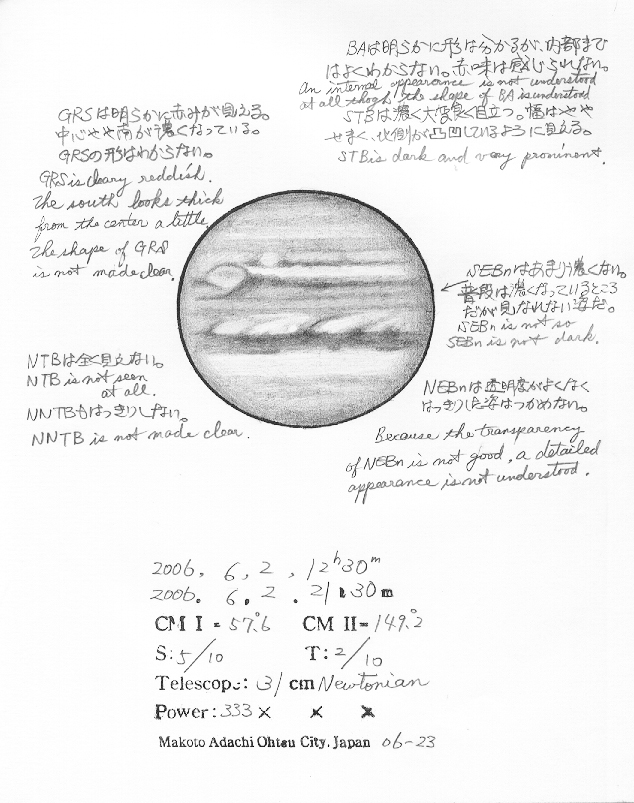 BAは明らかに形は分かるが、内部まで
はよくわからない。赤味は感じられない。
An internal appearance is not understood
at all thogh, the shape of BA is understood
STBは濃く大変良く目立つ。幅はやや
せまく、北側が凸凹しているように見える。
STB is dark and very prominent.
GRSは明らかに赤みが見える。
中心やや南が濃くなっている。
GRSの形はわからない。
GRS is cleary reddish.
The south looks thick
from the center a little.
The shape of GRS
is not made clear.
SEBnはあまり濃くない。
普段は濃くなっているところ
だが見なれない姿だ。
SEBn is not so
SEBn is not dark.
NTBは全く見えない。
NTB is not seen
at all.
NNTBもはっきりしない。
NNTB is not made clear.
NEBnは透明度がよくなく
はっきりした姿はつかめない。
Because the transparency
of NEBn is not good, a detailed
appearance is not understood.
2006. 6, 2, 12h30m
2006. 6. 2. 21 30m
CM I = 57.°6 CM II= 149.°2
S: 5/10 T: 2/10
Telescope: 31 cm Newtonian
Power: 333× × ×
Makoto Adachi Ohtsu City. Japan 06-23